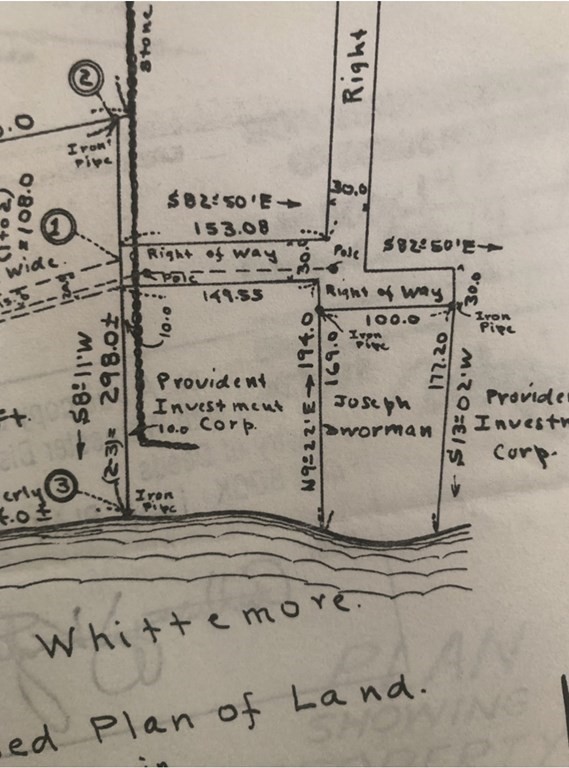 Stone
Right
2
Iron
Pipe
30.0
S82°50'E
153.08
1
= 108.0
Wide.
Right of Way
30.0
Pole
S82°50'E
Pole
149.55
Right of Way
30.0
100.0
Iron
Pipe
Iron
Pipe
10.0
S8°11'W
(2-3)= 298.0±
Provident
Investment
Corp.
10.0
N9°22'E
194.0
169.0
Joseph
Dworman
177.20
S13°02'W
Provide
Investm
Corp.
3
Iron
Pipe
erly
Whittemore.
ed Plan of Land.
in
PLAN
SHOWING